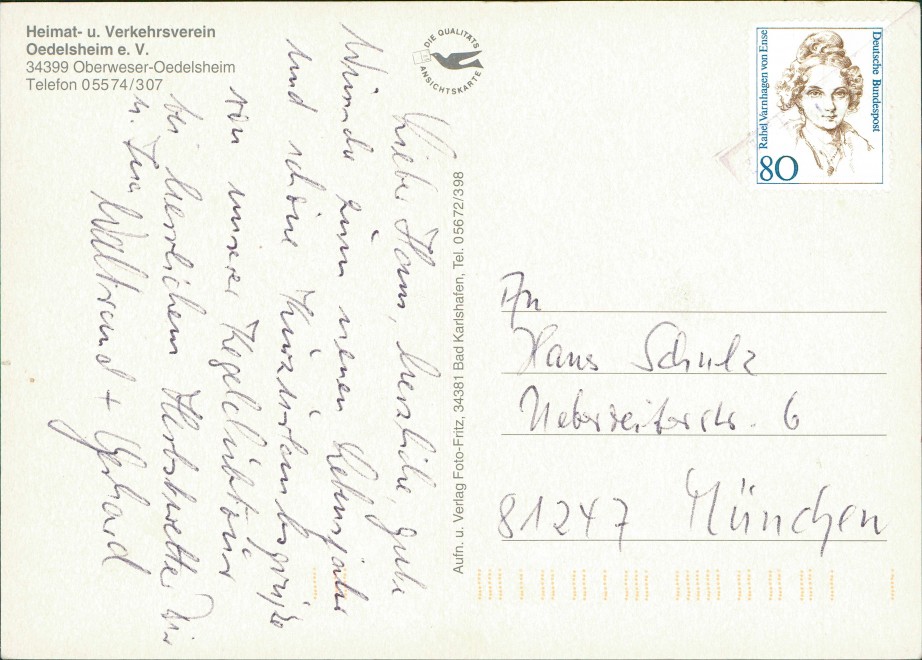 Heimat- u. Verkehrsverein
Oedelsheim e. V.
34399 Oberweser-Oedelsheim
Telefon 05574/307
DIE QUALITÄTS
ANSICHTSKARTE
Liebe Hans, herzliche gute
Wünsche zum neuen Lebensjahr
und schöne Kurzurlaubsgrüße
von unserer Kegelclubtour
bei herrlichem Herbstwetter Dir
u.
Waltraud + Gerhard
Aufn. u. Verlag Foto-Fritz, 34381 Bad Karlshafen, Tel. 05672/398
Rahel Varnhagen von Ense
Deutsche Bundespost
80
An
Hans Schulz
6
81247 München